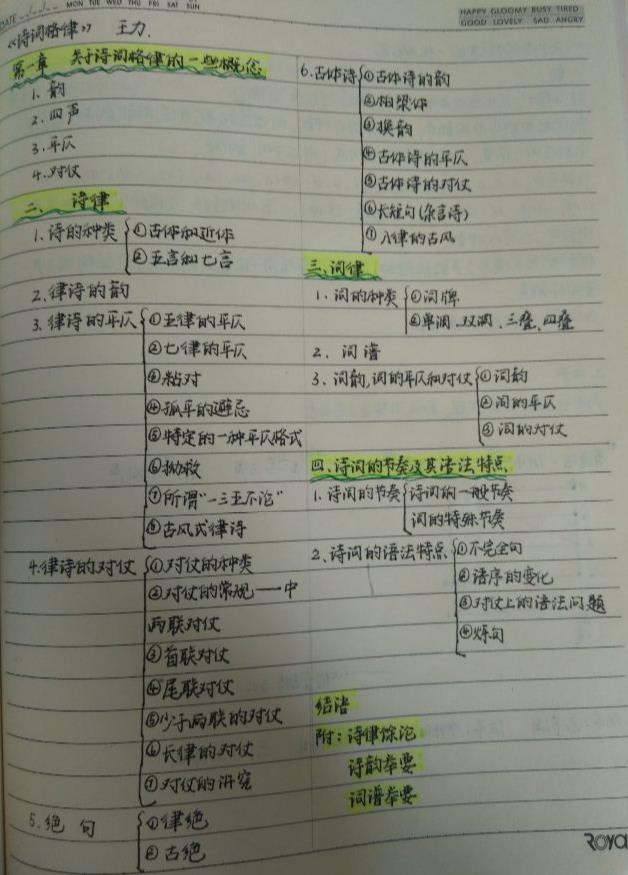 DATE
MON TUE WED THU FRI SAT SUN
HAPPY GLOOMY BUSY TIRED
GOOD LOVELY SAD ANGRY
《诗词格律》 王力.
第一章 关于诗词格律的一些概念
1. 韵
2. 四声
3. 平仄
4. 对仗
二、诗律
1. 诗的种类
①古体和近体
②五言和七言
2. 律诗的韵
3. 律诗的平仄
①五律的平仄
②七律的平仄
③粘对
④孤平的避忌
⑤特定的一种平仄格式
⑥拗救
⑦所谓“一三五不论”
⑧古风式律诗
4. 律诗的对仗
①对仗的种类
②对仗的常规——中
两联对仗
③首联对仗
④尾联对仗
⑤少于两联的对仗
⑥长律的对仗
⑦对仗的讲究
5. 绝句
①律绝
②古绝
6. 古体诗
①古体诗的韵
②柏梁体
③换韵
④古体诗的平仄
⑤古体诗的对仗
⑥长短句(杂言诗)
⑦入律的古风
三. 词律
1. 词的种类
①词牌
②单调、双调、三叠、四叠
2. 词谱
3. 词韵,词的平仄和对仗
①词韵
②词的平仄
③词的对仗
四. 诗词的节奏及其语法特点
1. 诗词的节奏
诗词的一般节奏
词的特殊节奏
2. 诗词的语法特点
①不完全句
②语序的变化
③对仗上的语法问题
④炼句
结语
附：诗律馀论
诗韵举要
词谱举要
ROYA